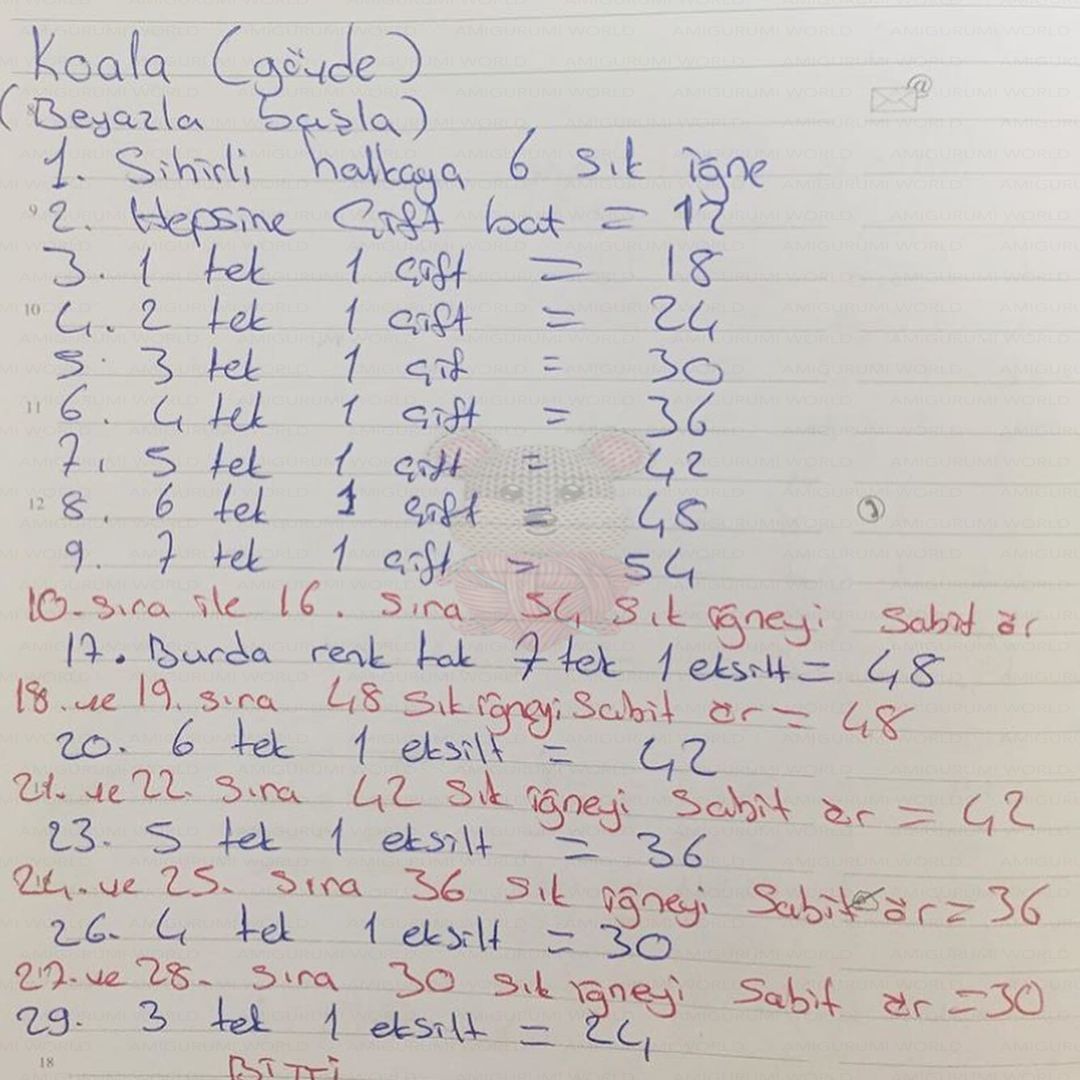 Koala (gövde)
(Beyazla başla)
1. Sihirli halkaya 6 sık iğne
2. Hepsine Çift bat = 12
3. 1 tek 1 çift = 18
4. 2 tek 1 çift = 24
5. 3 tek 1 çif = 30
6. 4 tek 1 çift = 36
7. 5 tek 1 çift = 42
8. 6 tek 1 çift = 48
9. 7 tek 1 çift = 54
10. sıra ile 16. sıra 54 sık iğneyi sabit ör
17. Burda renk tak 7 tek 1 eksilt = 48
18. ve 19. sıra 48 sık iğneyi sabit ör = 48
20. 6 tek 1 eksilt = 42
21. ve 22. sıra 42 sık iğneyi sabit ör = 42
23. 5 tek 1 eksilt = 36
24. ve 25. sıra 36 sık iğneyi sabit ör = 36
26. 4 tek 1 eksilt = 30
27. ve 28. sıra 30 sık iğneyi sabit ör = 30
29. 3 tek 1 eksilt = 24
BİTTİ